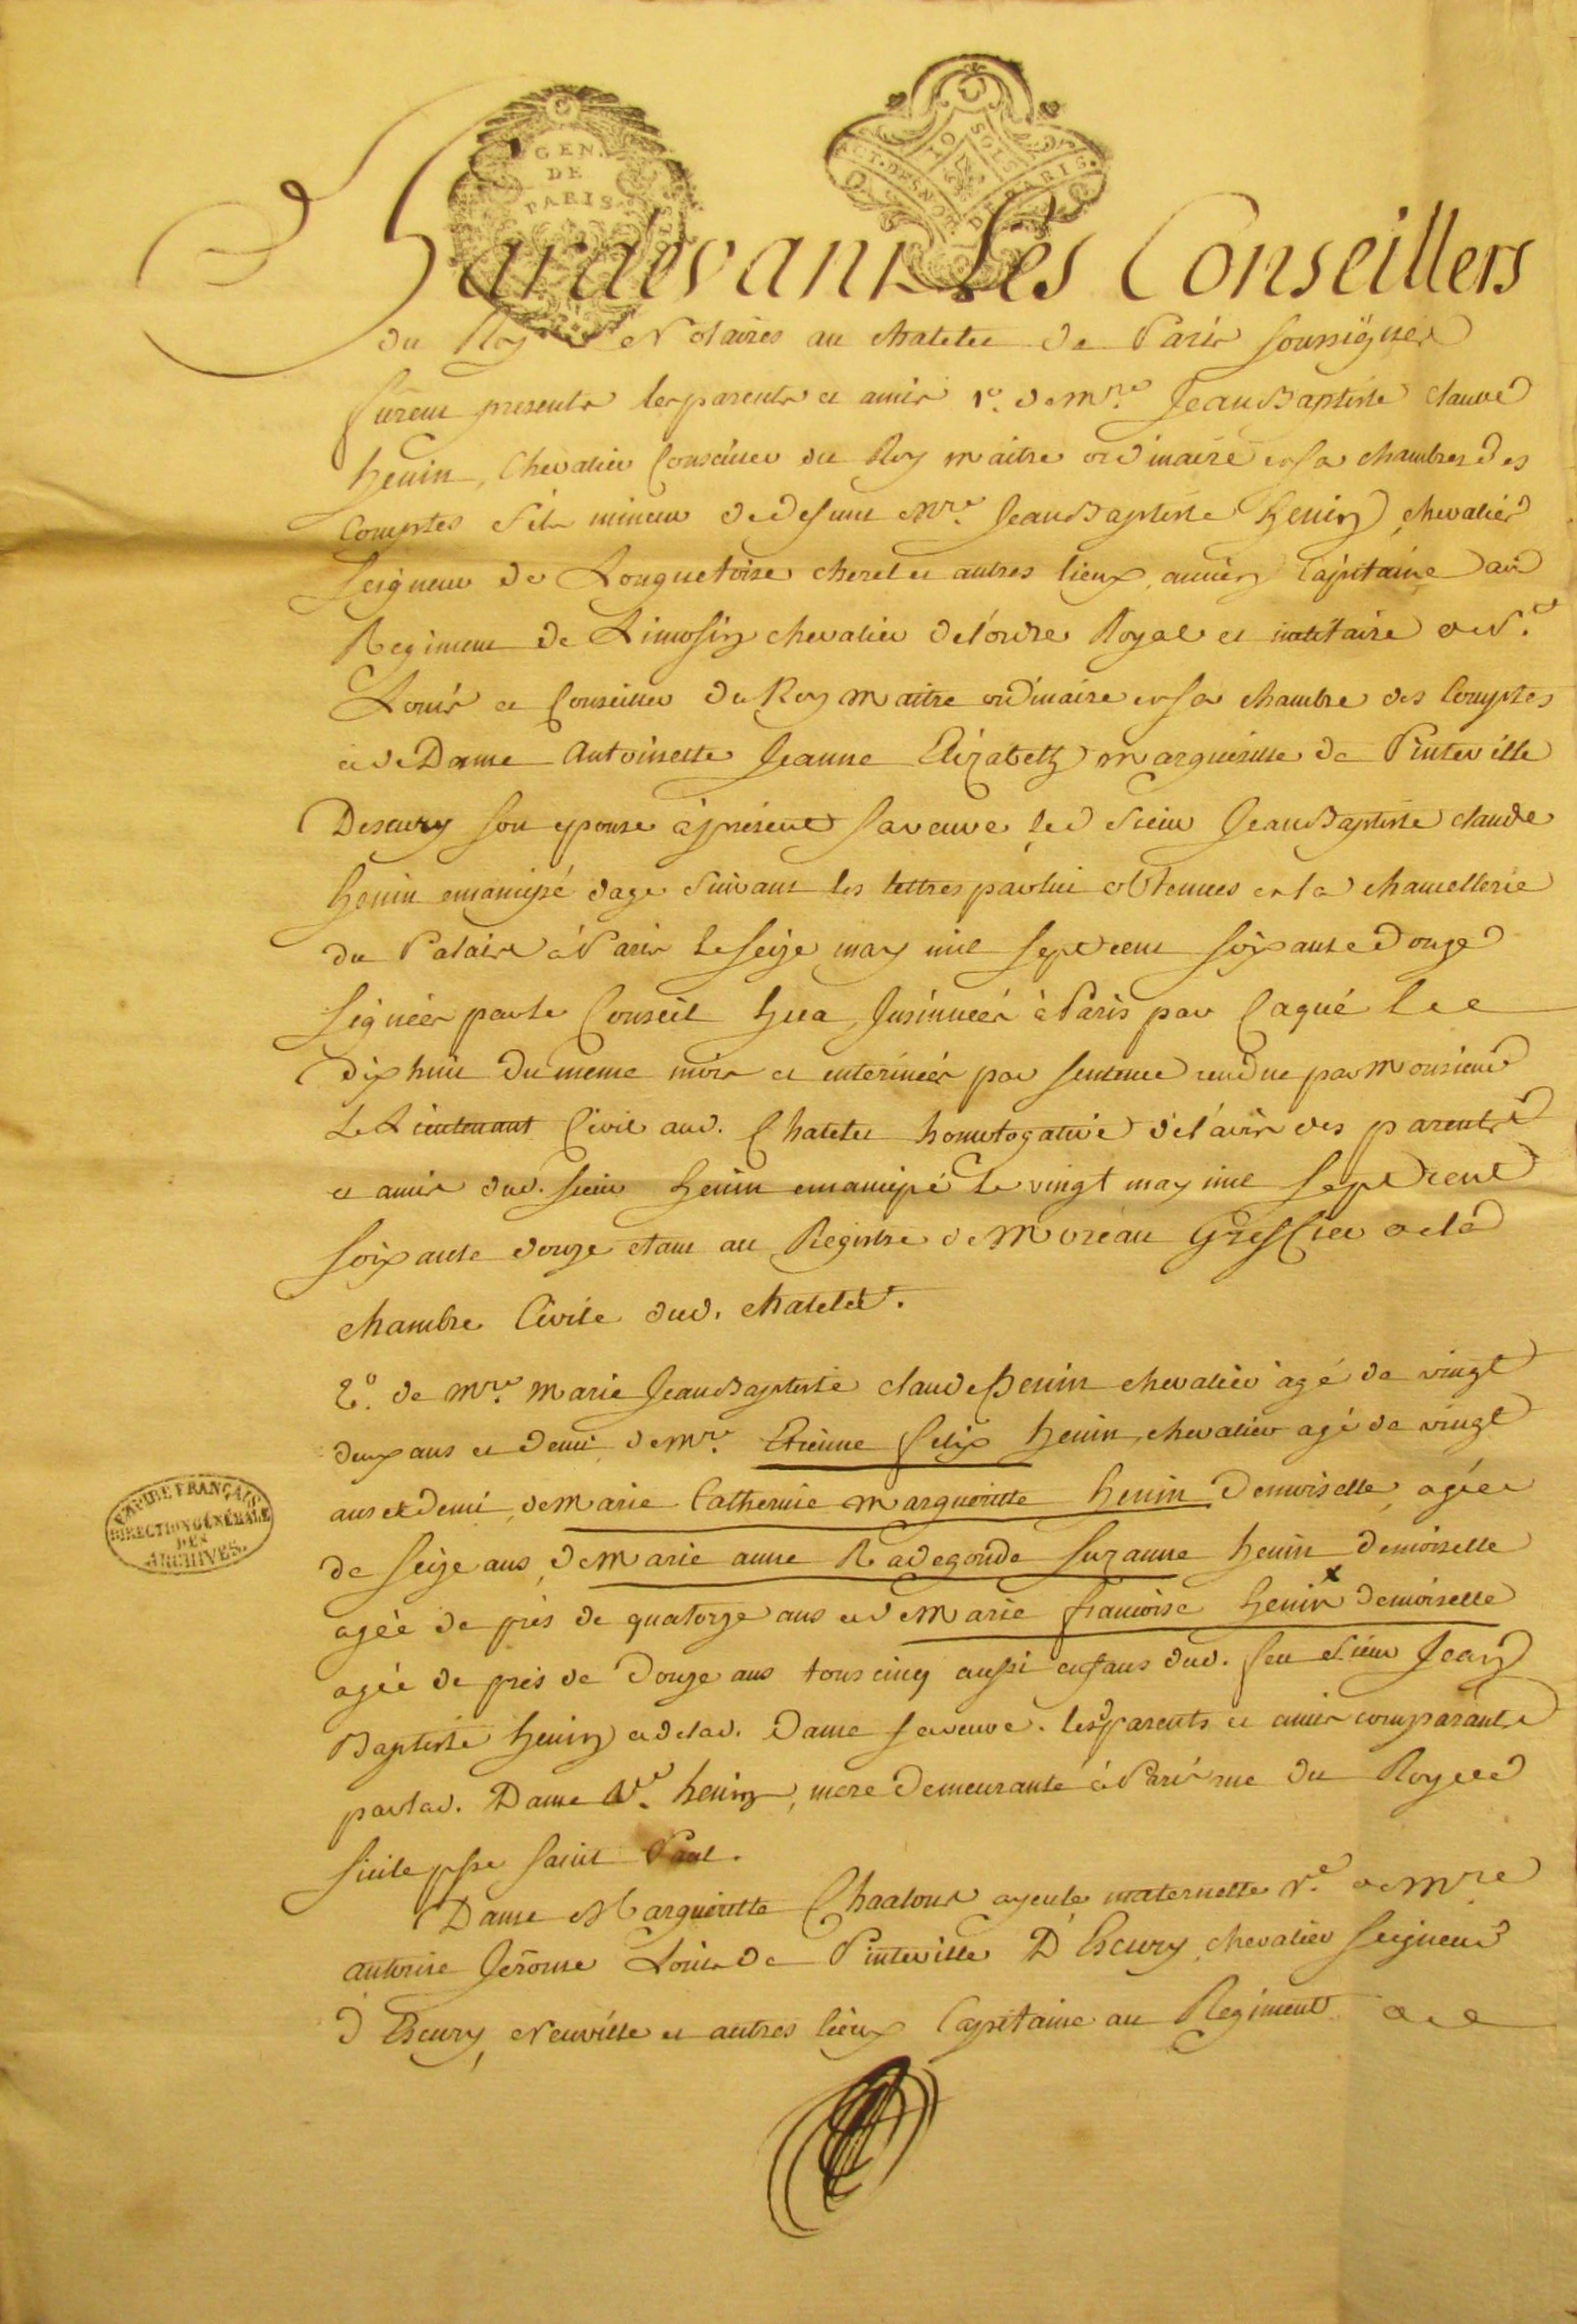 GEN.
DE
PARIS
ACT. DES NOT. DE PARIS.
10 SOLS
Pardevant Les Conseillers
du Roy Notaires au chatelet de Paris soussignés
furent presents les parents et amis 1º. de Mre. Jean Baptiste claude
henin, Chevalier Conseiller du Roy maitre ordinaire en sa chambre des
Comptes fils mineur de defunt Mre. Jean Baptiste henin chevalier
Seigneur de Longuetoise cherel et autres lieux, ancien Capitaine au
Regiment de Limosin chevalier de l'ordre Royal et militaire de St.
Louis et Conseiller du Roy maitre ordinaire en sa chambre des Comptes
et de Dame Antoinette Jeanne Elizabeth margueritte de Pinteville
Descury son epouse à present sa veuve, led. Sieur Jean Baptiste claude
henin emancipé d'age suivant les lettres par lui obtenues en la chancellerie
du Palais à Paris le seize may mil sept cent soixante douze
signées par le Conseil hua, Insinuées à Paris par Caqué le
dix huit du meme mois et enterinées par sentence rendue par Monsieur
Le Lieutenant Civil aud. Chatelet homologative de l'avis des parents
et amis dud. sieur henin emancipé le vingt may mil sept cent
soixante douze etant au Registre de Moreau Greffier de la
chambre Civile dud. chatelet.
2º. de Mre. Marie Jean Baptiste claude henin chevalier agé de vingt
deux ans et demi, de Mre. Etienne felix henin, chevalier agé de vingt
ans et demi, de Marie Catherine Margueritte henin Demoiselle, agée
de seize ans, de Marie anne Radegonde suzanne henin demoiselle
agée de près de quatorze ans et de Marie francoise henin x demoiselle
agée de près de douze ans tous cinq aussi enfans dud. feu Sieur Jean
Baptiste henin et de lad. Dame sa veuve. lesd. parents et amis comparants
par lad. Dame Ve. henin, mere demeurante à Paris rue du Roy de
Sicile psse saint Paul.
Dame Margueritte Chaalons ayeule maternelle Ve. de Mre
antoine Jerome Louis de Pinteville D'Escury, chevalier Seigneur
d'Escury, Neuville et autres lieux Capitaine au Regiment de
EMPIRE FRANÇAIS
DIRECTION GÉNÉRALE
DES
ARCHIVES.